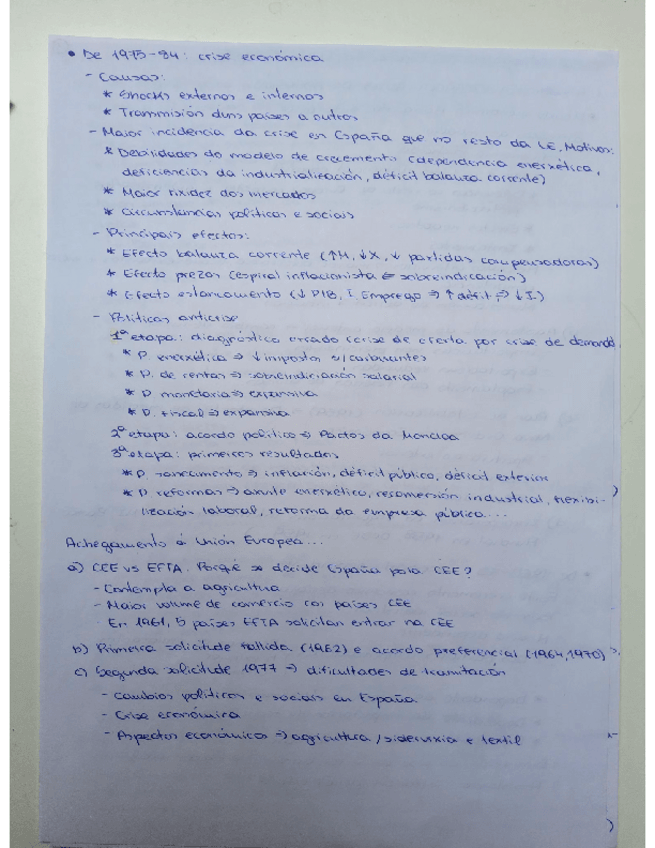 • De 1975-84: crise económica
- Causas:
* Shocks externos e internos
* Transmisión duns países a outros
- Maior incidencia da crise en España que no resto da UE. Motivos:
* Debilidades do modelo de crecemento (dependencia enerxética,
deficiencias da industrialización, déficit balanza corrente)
* Maior rixidez dos mercados
* Circunstancias políticas e sociais
- Principais efectos:
* Efecto balanza corrente (↑M, ↓X, ↓ partidas compensadoras)
* Efecto prezos (espiral inflacionista ⇐ sobreindicación)
* Efecto estancamento (↓ PIB, Emprego ⇒ ↑ déficit ⇒ ↓I)
- Políticas anticrise
1ª etapa: diagnóstico errado (crise de oferta por crise de demanda
* P. enerxética ⇒ ↓ impostos s/carburantes
* P. de rentas ⇒ sobreindiciación salarial
* P monetaria ⇒ expansiva
* P. fiscal ⇒ expansiva
2ª etapa: acordo político ⇒ Pactos da Moncloa
3ª etapa: primeiros resultados
* P. saneamento ⇒ inflación, déficit público, déficit exterior
* P reformas → axuste enerxético, reconversión industrial, flexibi-
lización laboral, reforma da empresa pública...
Achegamento á Unión Europea...
a) CEE vs EFTA. Porqué se decide España pola CEE?
- Contempla a agricultura
- Maior volume de comercio cos países CEE
- En 1961, 5 países EFTA solicitan entrar na CEE
b) Primeira solicitude fallida (1962) e acordo preferencial (1964, 1970)
c) Segunda solicitude 1977 → dificultades de tramitación
- Cambios políticos e sociais en España
- Crise económica
- Aspectos económicos → agricultura / siderurxia e textil